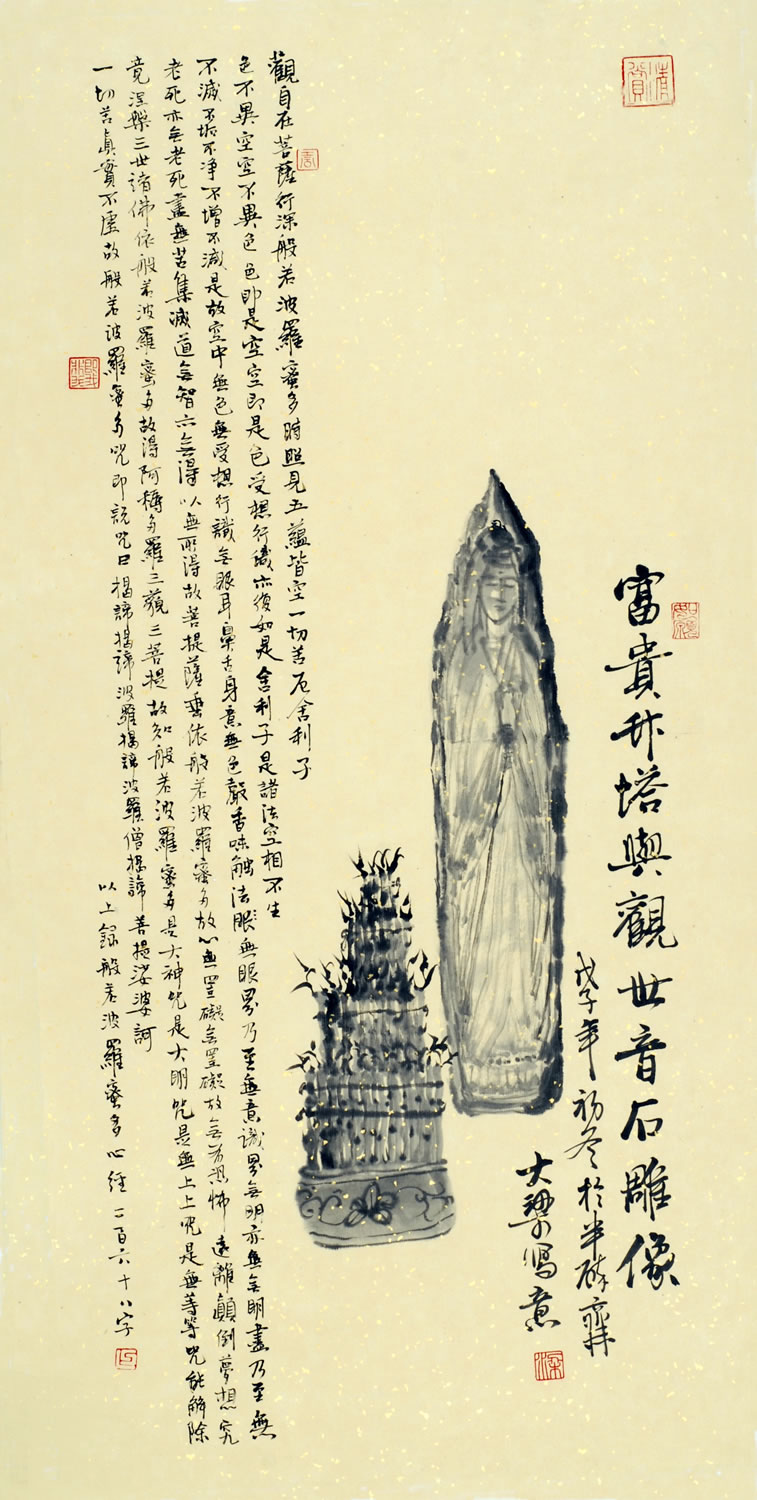 富貴竹塔與觀世音石雕像
戊子年初冬於半醉齋
大梁寫意
觀自在菩薩行深般若波羅蜜多時照見五蘊皆空一切苦厄舍利子
色不異空空不異色色即是空空即是色受想行識亦復如是舍利子是諸法空相不生
不滅不垢不淨不增不減是故空中無色無受想行識無眼耳鼻舌身意無色聲香味觸法無眼界乃至無意識界無無明亦無無明盡乃至無
老死亦無老死盡無苦集滅道無智亦無得以無所得故菩提薩埵依般若波羅蜜多故心無罣礙無罣礙故無有恐怖遠離顛倒夢想究
竟涅槃三世諸佛依般若波羅蜜多故得阿耨多羅三藐三菩提故知般若波羅蜜多是大神咒是大明咒是無上上咒是無等等咒能解除
一切苦真實不虛故般若波羅蜜多咒即說咒曰揭諦揭諦波羅揭諦波羅僧揭諦菩提娑婆訶
以上錄般若波羅蜜多心經二百六十八字